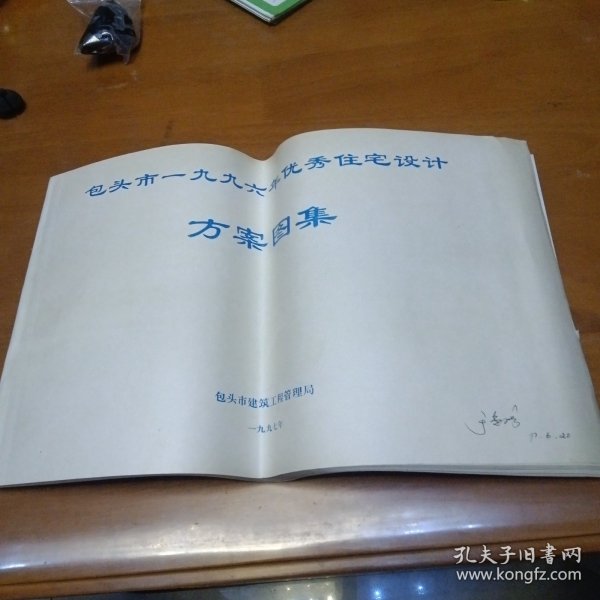 包头市一九九六年优秀住宅设计
方案图集
包头市建筑工程管理局
一九九七年
孔夫子旧书网
www.kongfz.com